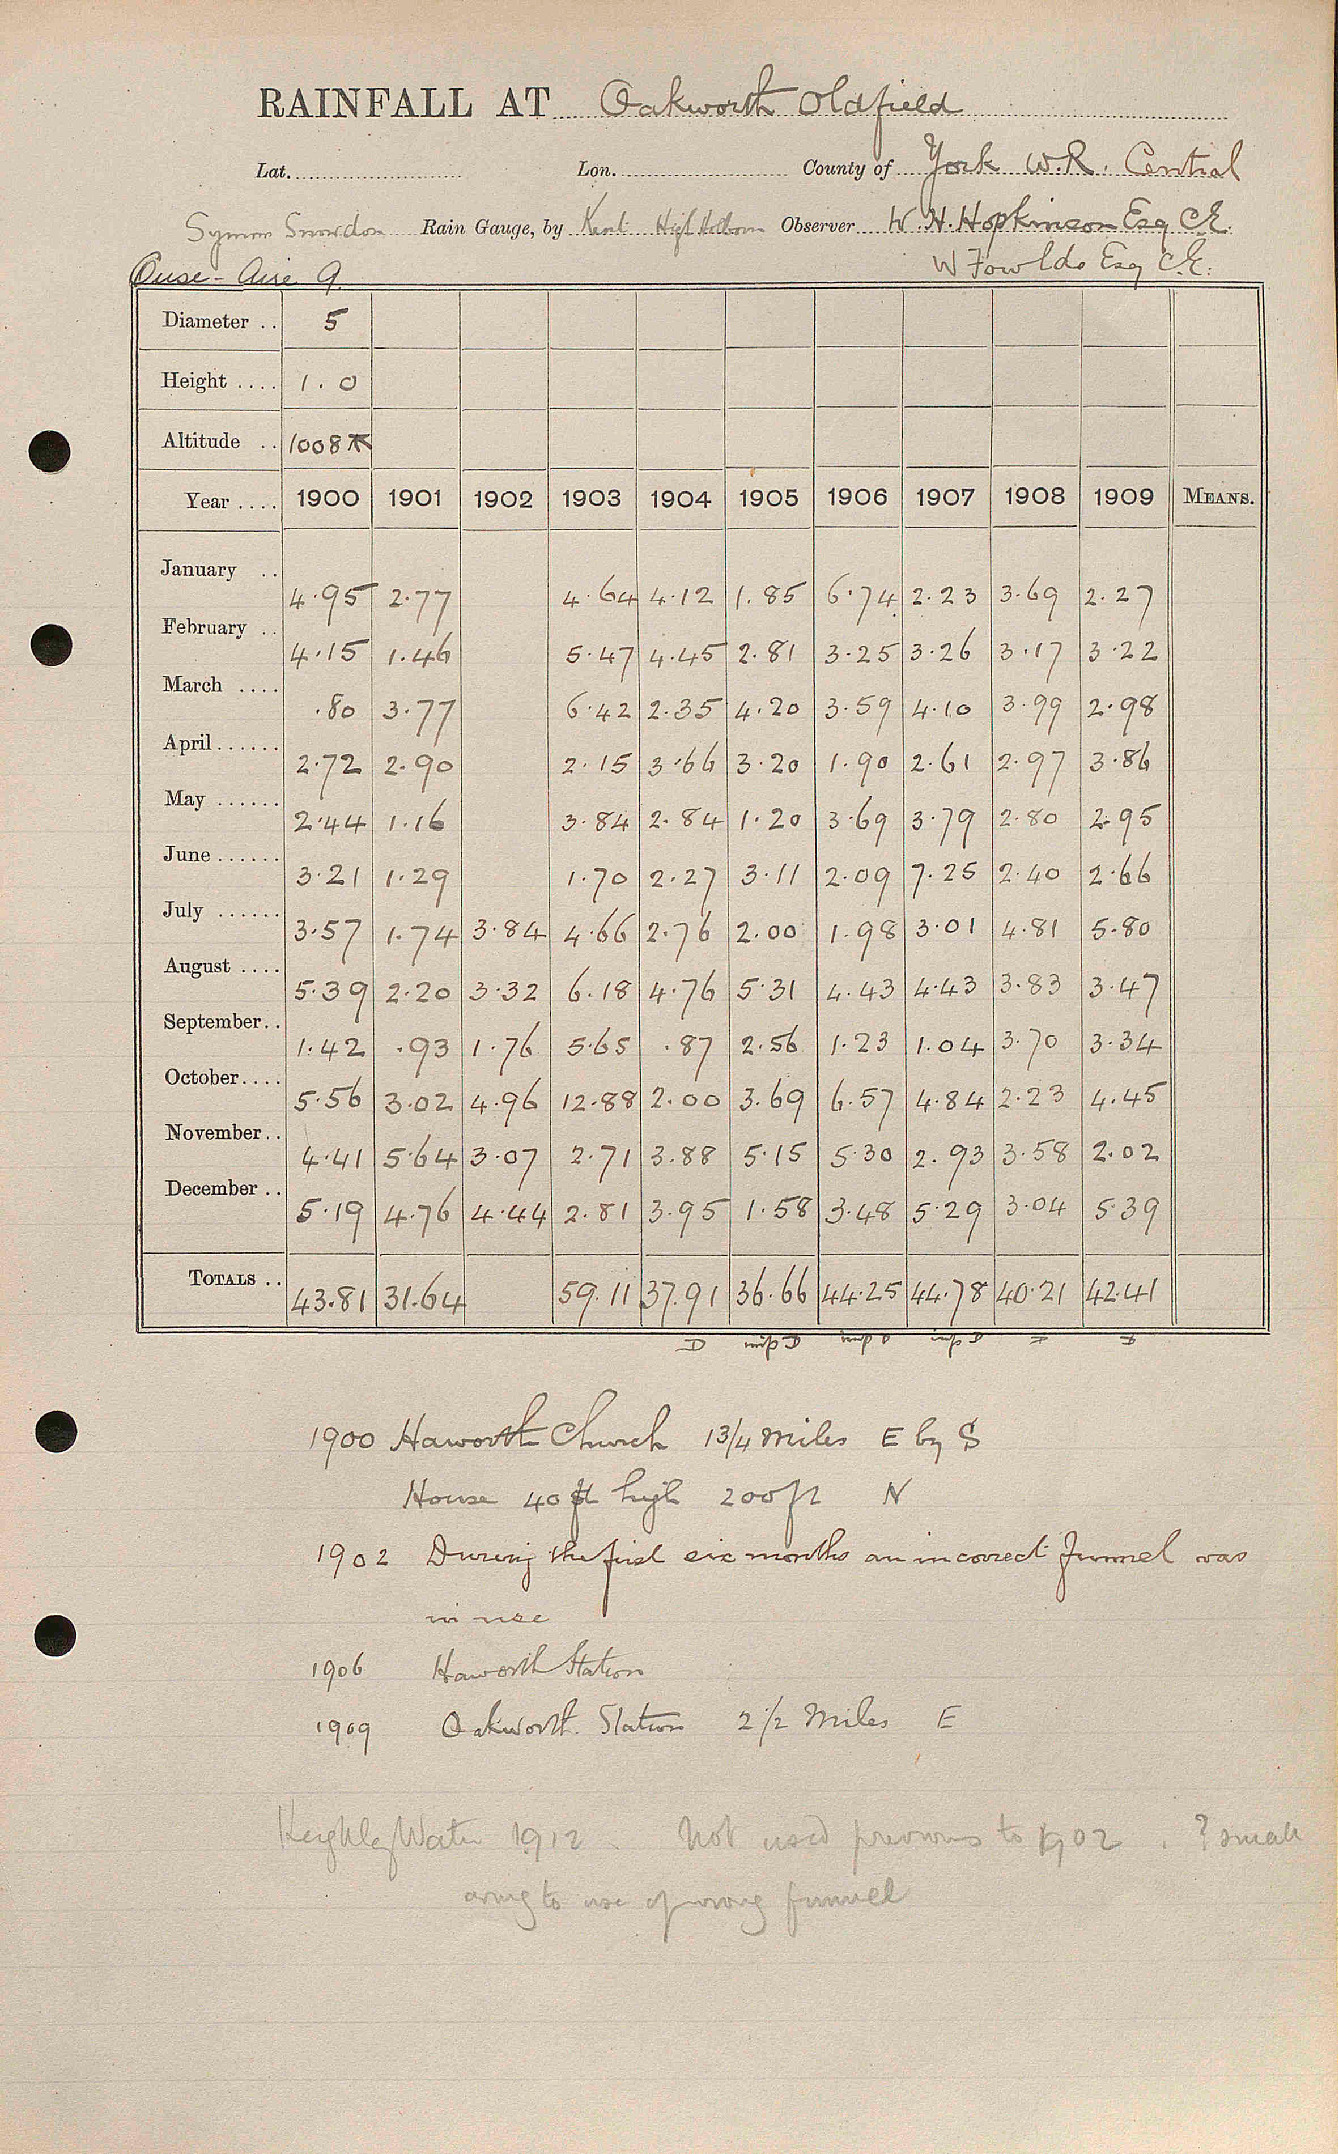 RAINFALL AT Oakworth Oldfield
Lat. Lon. County of York W.R. Central
Symons Snowdon Rain Gauge, by Kent High Holborn Observer W. H. Hopkinson Esq C.E.
Ouse-Aire 9. W Fowlds Esq C.E.
Diameter .. 5
Height .... 1. 0
Altitude .. 1008
Year .... 1900 1901 1902 1903 1904 1905 1906 1907 1908 1909 MEANS.
January .. 4.95 2.77 4.64 4.12 1.85 6.74 2.23 3.69 2.27
February .. 4.15 1.46 5.47 4.45 2.81 3.25 3.26 3.17 3.22
March .... .80 3.77 6.42 2.35 4.20 3.59 4.10 3.99 2.98
April...... 2.72 2.90 2.15 3.66 3.20 1.90 2.61 2.97 3.86
May ...... 2.44 1.16 3.84 2.84 1.20 3.69 3.79 2.80 2.95
June...... 3.21 1.29 1.70 2.27 3.11 2.09 7.25 2.40 2.66
July ...... 3.57 1.74 3.84 4.66 2.76 2.00 1.98 3.01 4.81 5.80
August .... 5.39 2.20 3.32 6.18 4.76 5.31 4.43 4.43 3.83 3.47
September.. 1.42 .93 1.76 5.65 .87 2.56 1.23 1.04 3.70 3.34
October.... 5.56 3.02 4.96 12.88 2.00 3.69 6.57 4.84 2.23 4.45
November.. 4.41 5.64 3.07 2.71 3.88 5.15 5.30 2.93 3.58 2.02
December .. 5.19 4.76 4.44 2.81 3.95 1.58 3.48 5.29 3.04 5.39
TOTALS .. 43.81 31.64 59.11 37.91 36.66 44.25 44.78 40.21 42.41
1900 Haworth Church 1 3/4 Miles E by S
House 40 ft high 200 ft N
1902 During the first six months an incorrect funnel was
in use
1906 Haworth Station
1909 Oakworth Station 2 1/2 Miles E
Keighley Water 1912. Not used previous to 1902. ? small
owing to use of wrong funnel